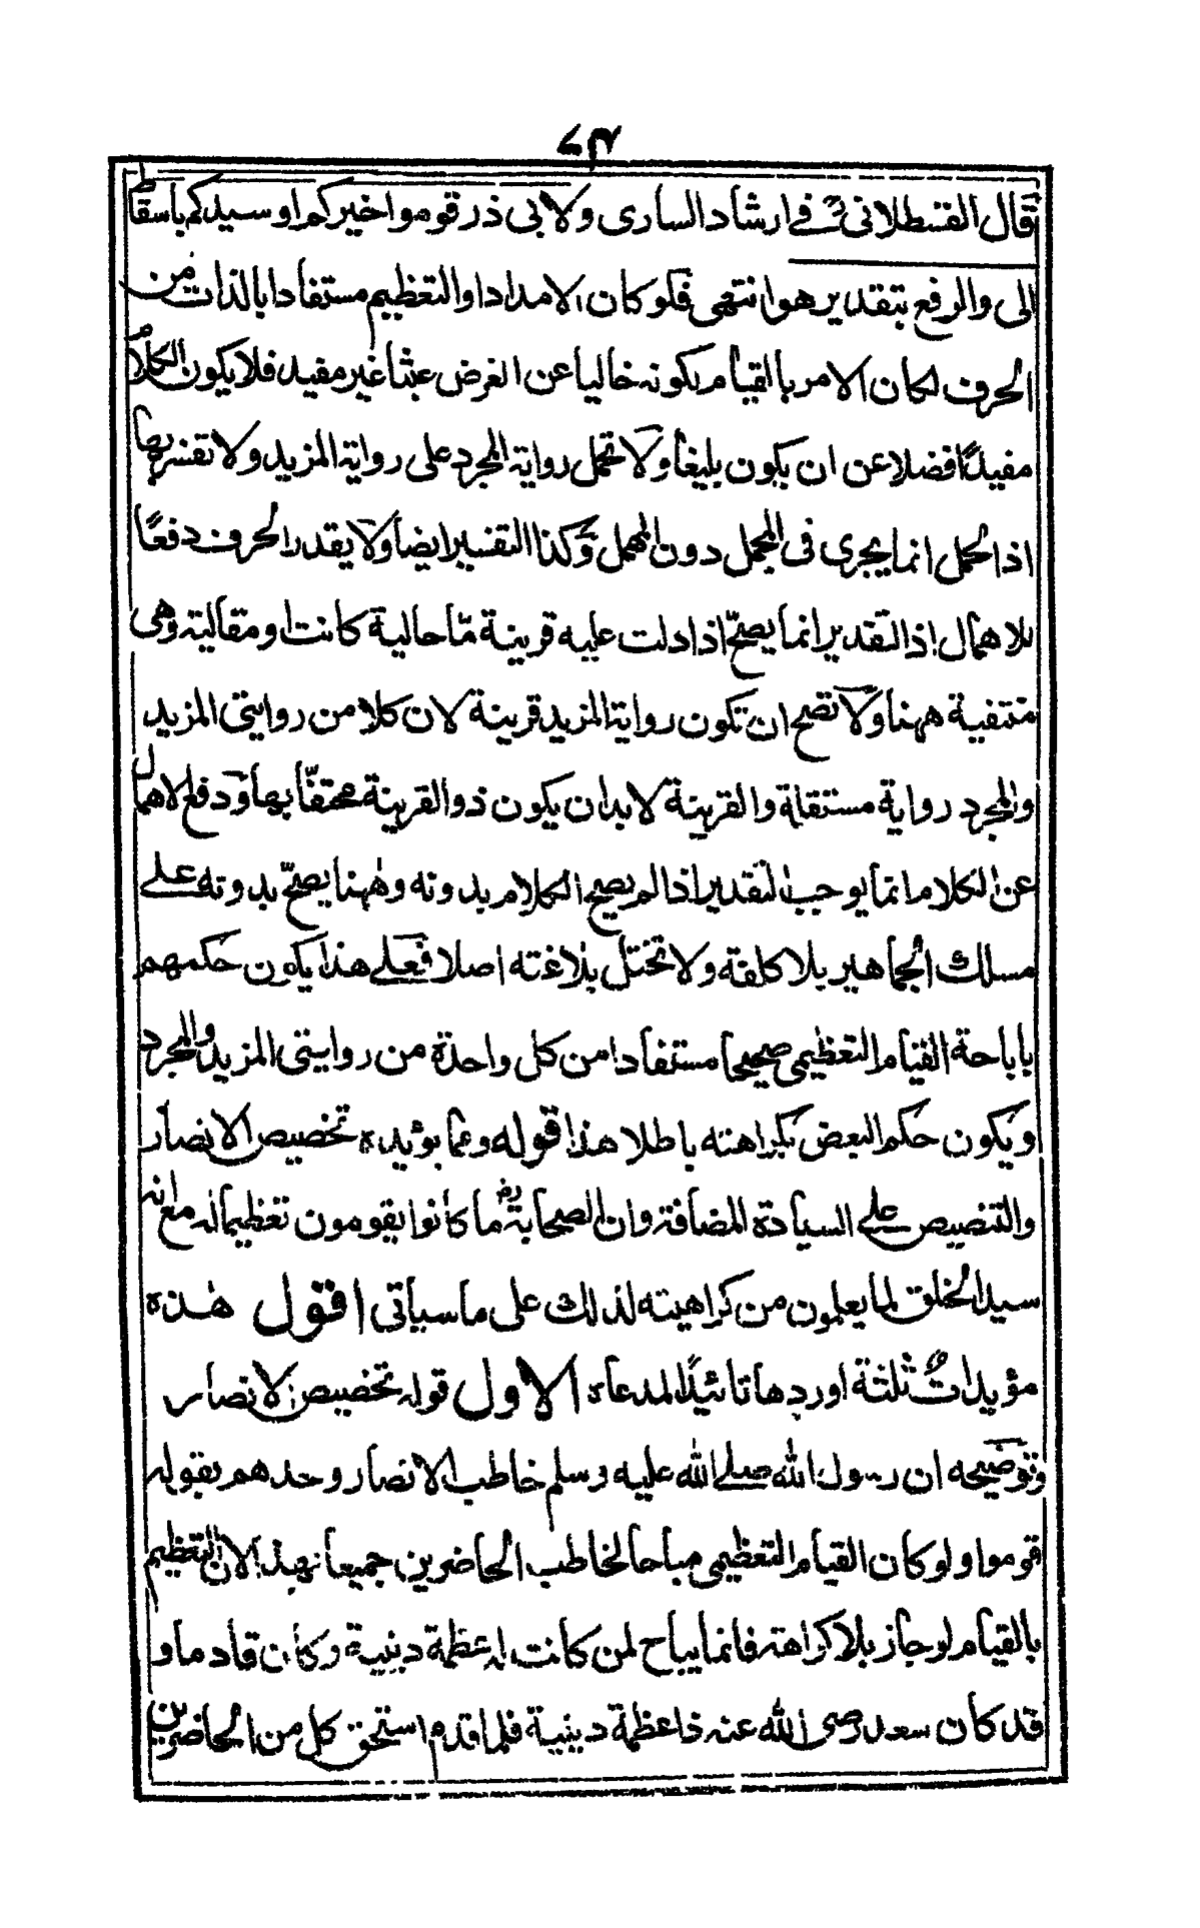 قال القسطلانی فے ارشاد الساری ولابی ذر قوموا خیرکم او سیدکم باسقاط
الی والرفع بتقدیر هو انتهی فلو کان الامداد او التعظیم مستفادا بالذات من
الحرف لکان الامر بالقیام بکونه خالیا عن الغرض عبثا غیر مفید فلا یکون الکلام
مفیدًا فضلا عن ان یکون بلیغا ولا تحمل روایة المجرد علی روایة المزید ولا تفسر بها
اذ الحمل انما یجری فی المجمل دون المهمل وکذا التفسیر ایضا ولا یقدر الحرف دفعًا
للاهمال اذ التقدیر انما یصحّ اذا دلت علیه قرینة مّا حالیة کانت او مقالیة وهی
منتفیة ههنا ولا تصح ان تکون روایة المزید قرینة لان کلا من روایتی المزید
والمجرد روایة مستقلة والقرینة لابد ان یکون ذو القرینة محتفّا بها ودفع الاهمال
عن الکلام انما یوجب التقدیر اذا لم یصح الکلام بدونه وههنا یصحّ بدونه علے
مسلک الجماهیر بلا کلفة ولا تختل بلاغته اصلا فعلے هذا یکون حکمهم
باباحة القیام التعظیمی صحیحا مستفادا من کل واحدة من روایتی المزید والمجرد
ویکون حکم البعض بکراهته باطلا هذا قوله ومما یؤیده تخصیص الانصار
والتنصیص علے السیادة المضافة وان الصحابة رض ما کانوا یقومون تعظیما له مع انه
سید الخلق لما یعلمون من کراهیته لذلک علی ما سیاتی اقول هذه
مؤیدات ثلثة اوردها تائیدًا لمدعاه الاول قوله تخصیص الانصار
وتوضیحه ان رسول الله صلے الله علیه وسلم خاطب الانصار وحدهم بقوله
قوموا ولو کان القیام التعظیمی مباحا لخاطب الحاضرین جمیعا بهذا لان التعظیم
بالقیام لو جاز بلا کراهة فانما یباح لمن کانت له عظمة دینیة وکان قادما و
قد کان سعد رضی الله عنه ذا عظمة دینیة فلما قدم استحق کل من الحاضرین